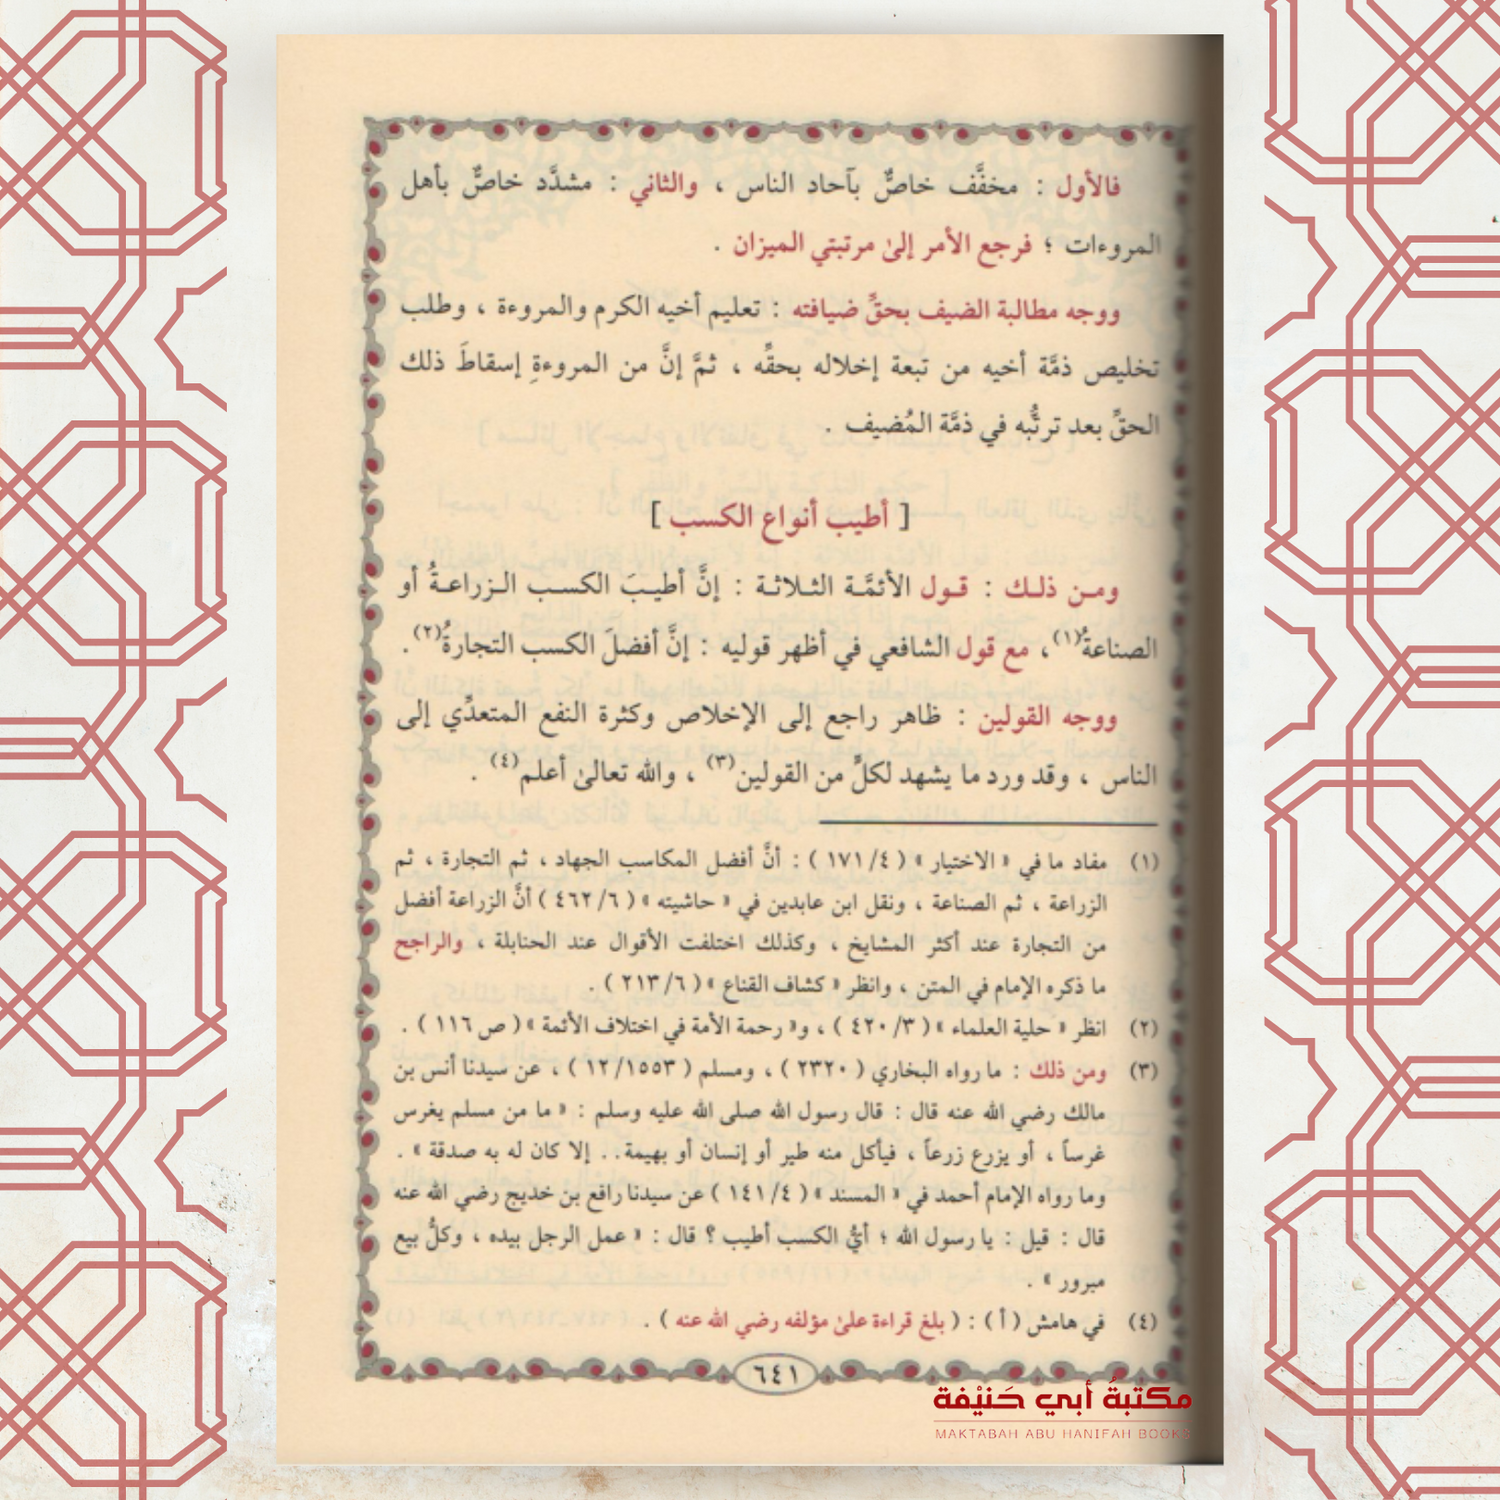 فالأول : مخفَّف خاصٌّ بآحاد الناس ، والثاني : مشدَّد خاصٌّ بأهل
المروءات ؛ فرجع الأمر إلىٰ مرتبتي الميزان .
ووجه مطالبة الضيف بحقِّ ضيافته : تعليم أخيه الكرم والمروءة ، وطلب
تخليص ذمَّة أخيه من تبعة إخلاله بحقِّه ، ثمَّ إنَّ من المروءةِ إسقاطَ ذلك
الحقِّ بعد ترتُّبه في ذمَّة المُضيف .
[ أطيب أنواع الكسب ]
ومـن ذلـك : قـول الأئمَّـة الثـلاثـة : إنَّ أطيـبَ الكسـب الـزراعـةُ أو
الصناعةُ(١)، مع قول الشافعي في أظهر قوليه : إنَّ أفضلَ الكسب التجارةُ(٢).
ووجه القولين : ظاهر راجع إلى الإخلاص وكثرة النفع المتعدِّي إلى
الناس ، وقد ورد ما يشهد لكلٍّ من القولين(٣) ، والله تعالىٰ أعلم(٤) .
(١) مفاد ما في « الاختيار » ( ١٧١/٤ ) : أنَّ أفضل المكاسب الجهاد ، ثم التجارة ، ثم
الزراعة ، ثم الصناعة ، ونقل ابن عابدين في « حاشيته » ( ٤٦٢/٦ ) أنَّ الزراعة أفضل
من التجارة عند أكثر المشايخ ، وكذلك اختلفت الأقوال عند الحنابلة ، والراجح
ما ذكره الإمام في المتن ، وانظر « كشاف القناع » ( ٢١٣/٦ ) .
(٢) انظر « حلية العلماء » ( ٤٢٠/٣ ) ، و« رحمة الأمة في اختلاف الأئمة » ( ص ١١٦ ) .
(٣) ومن ذلك : ما رواه البخاري ( ٢٣٢٠ ) ، ومسلم ( ١٢/١٥٥٣ ) ، عن سيدنا أنس بن
مالك رضي الله عنه قال : قال رسول الله صلى الله عليه وسلم : « ما من مسلم يغرس
غرساً ، أو يزرع زرعاً ، فيأكل منه طير أو إنسان أو بهيمة.. إلا كان له به صدقة » .
وما رواه الإمام أحمد في « المسند » ( ١٤١/٤ ) عن سيدنا رافع بن خديج رضي الله عنه
قال : قيل : يا رسول الله ؛ أيُّ الكسب أطيب ؟ قال : « عمل الرجل بيده ، وكلُّ بيع
مبرور » .
(٤) في هامش ( أ ) : ( بلغ قراءة علىٰ مؤلفه رضي الله عنه ) .
٦٤١
مكتبةُ أبي حَنيْفة
MAKTABAH ABU HANIFAH BOOKS